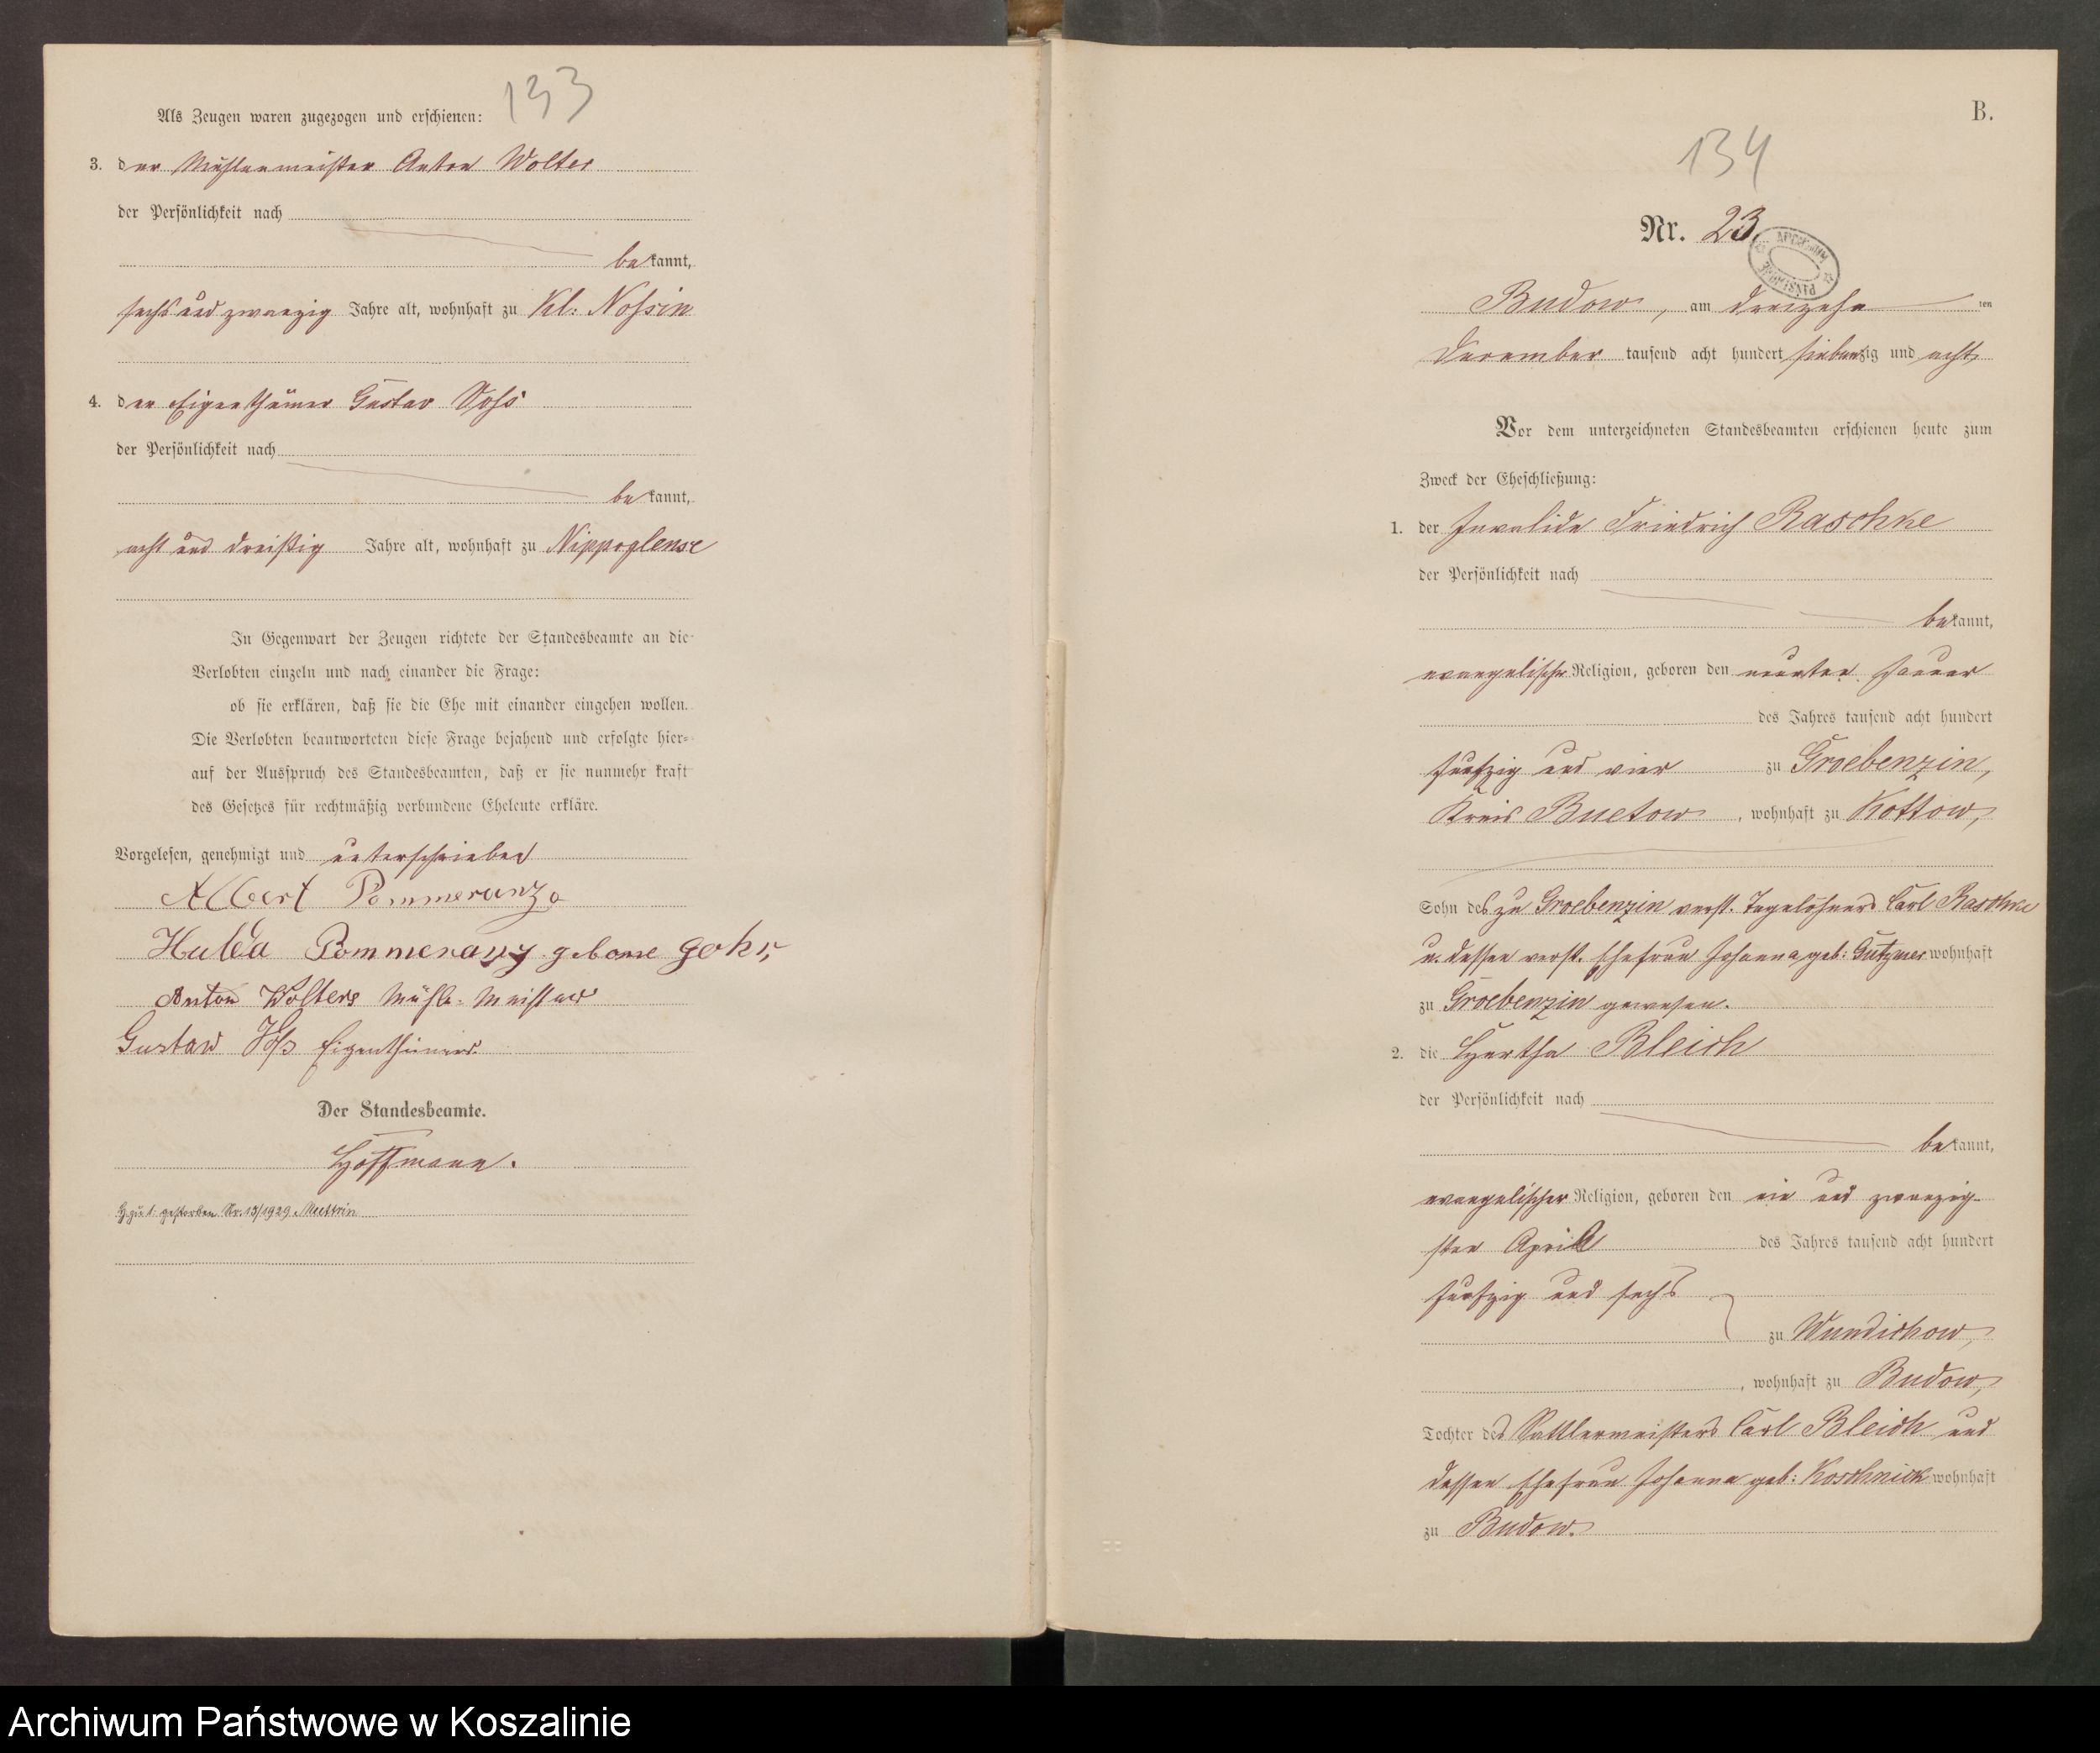 133
Als Zeugen waren zugezogen und erschienen:
3. der Mühlenmeister Anton Wolter
der Persönlichkeit nach
bekannt,
sechs und zwanzig Jahre alt, wohnhaft zu Kl: Nossin
4. der Eigenthümer Gustav
der Persönlichkeit nach
bekannt,
acht und dreißig Jahre alt, wohnhaft zu Nippoglense
In Gegenwart der Zeugen richtete der Standesbeamte an die
Verlobten einzeln und nach einander die Frage:
ob sie erklären, daß sie die Ehe mit einander eingehen wollen.
Die Verlobten beantworteten diese Frage bejahend und erfolgte hier-
auf der Ausspruch des Standesbeamten, daß er sie nunmehr kraft
des Gesetzes für rechtmäßig verbundene Eheleute erkläre.
Vorgelesen, genehmigt und unterschrieben
Albert Pommeranz
Hulda Pommeranz geborne Gohr,
Anton Wolters Mühl. Meister
Gustav Eigenthümer.
Der Standesbeamte.
Hoffmann.
gestorben Nr. 13/1929. Muttrin
B.
134
Nr. 23.
ARCHIWUM PAŃSTWOWE
Budow, am dreizehn ten
Dezember tausend acht hundert siebenzig und acht
Vor dem unterzeichneten Standesbeamten erschienen heute zum
Zweck der Eheschließung:
1. der Invalide Friedrich Raschke
der Persönlichkeit nach
bekannt,
evangelischer Religion, geboren den neunten Januar
des Jahres tausend acht hundert
funfzig und vier zu Groebenzin,
Kreis Buetow, wohnhaft zu Kottow,
Sohn des zu Groebenzin verst. Tagelöhners Carl Raschke
u. dessen verst. Ehefrau Johanna geb: Gutzmer wohnhaft
zu Groebenzin gewesen.
2. die Hertha Bleich
der Persönlichkeit nach
bekannt,
evangelischer Religion, geboren den ein und zwanzig-
sten April des Jahres tausend acht hundert
funfzig und sechs
zu Wundichow,
, wohnhaft zu Budow,
Tochter des Sattlermeisters Carl Bleich und
dessen Ehefrau Johanna geb: Koschnick wohnhaft
zu Budow.
Archiwum Państwowe w Koszalinie